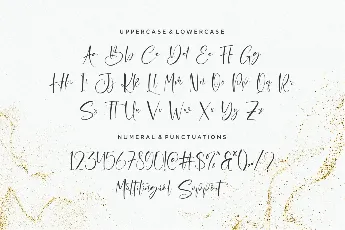 UPPERCASE & LOWERCASE
Aa Bb Cc Dd Ee Ff Gg
Hh Ii Jj Kk Ll Mm Nn Oo Pp Qq Rr
Ss Tt Uu Vv Ww Xx Yy Zz
NUMERAL & PUNCTUATIONS
1234567890!@#$%^&*().,/?
Multilingual Support